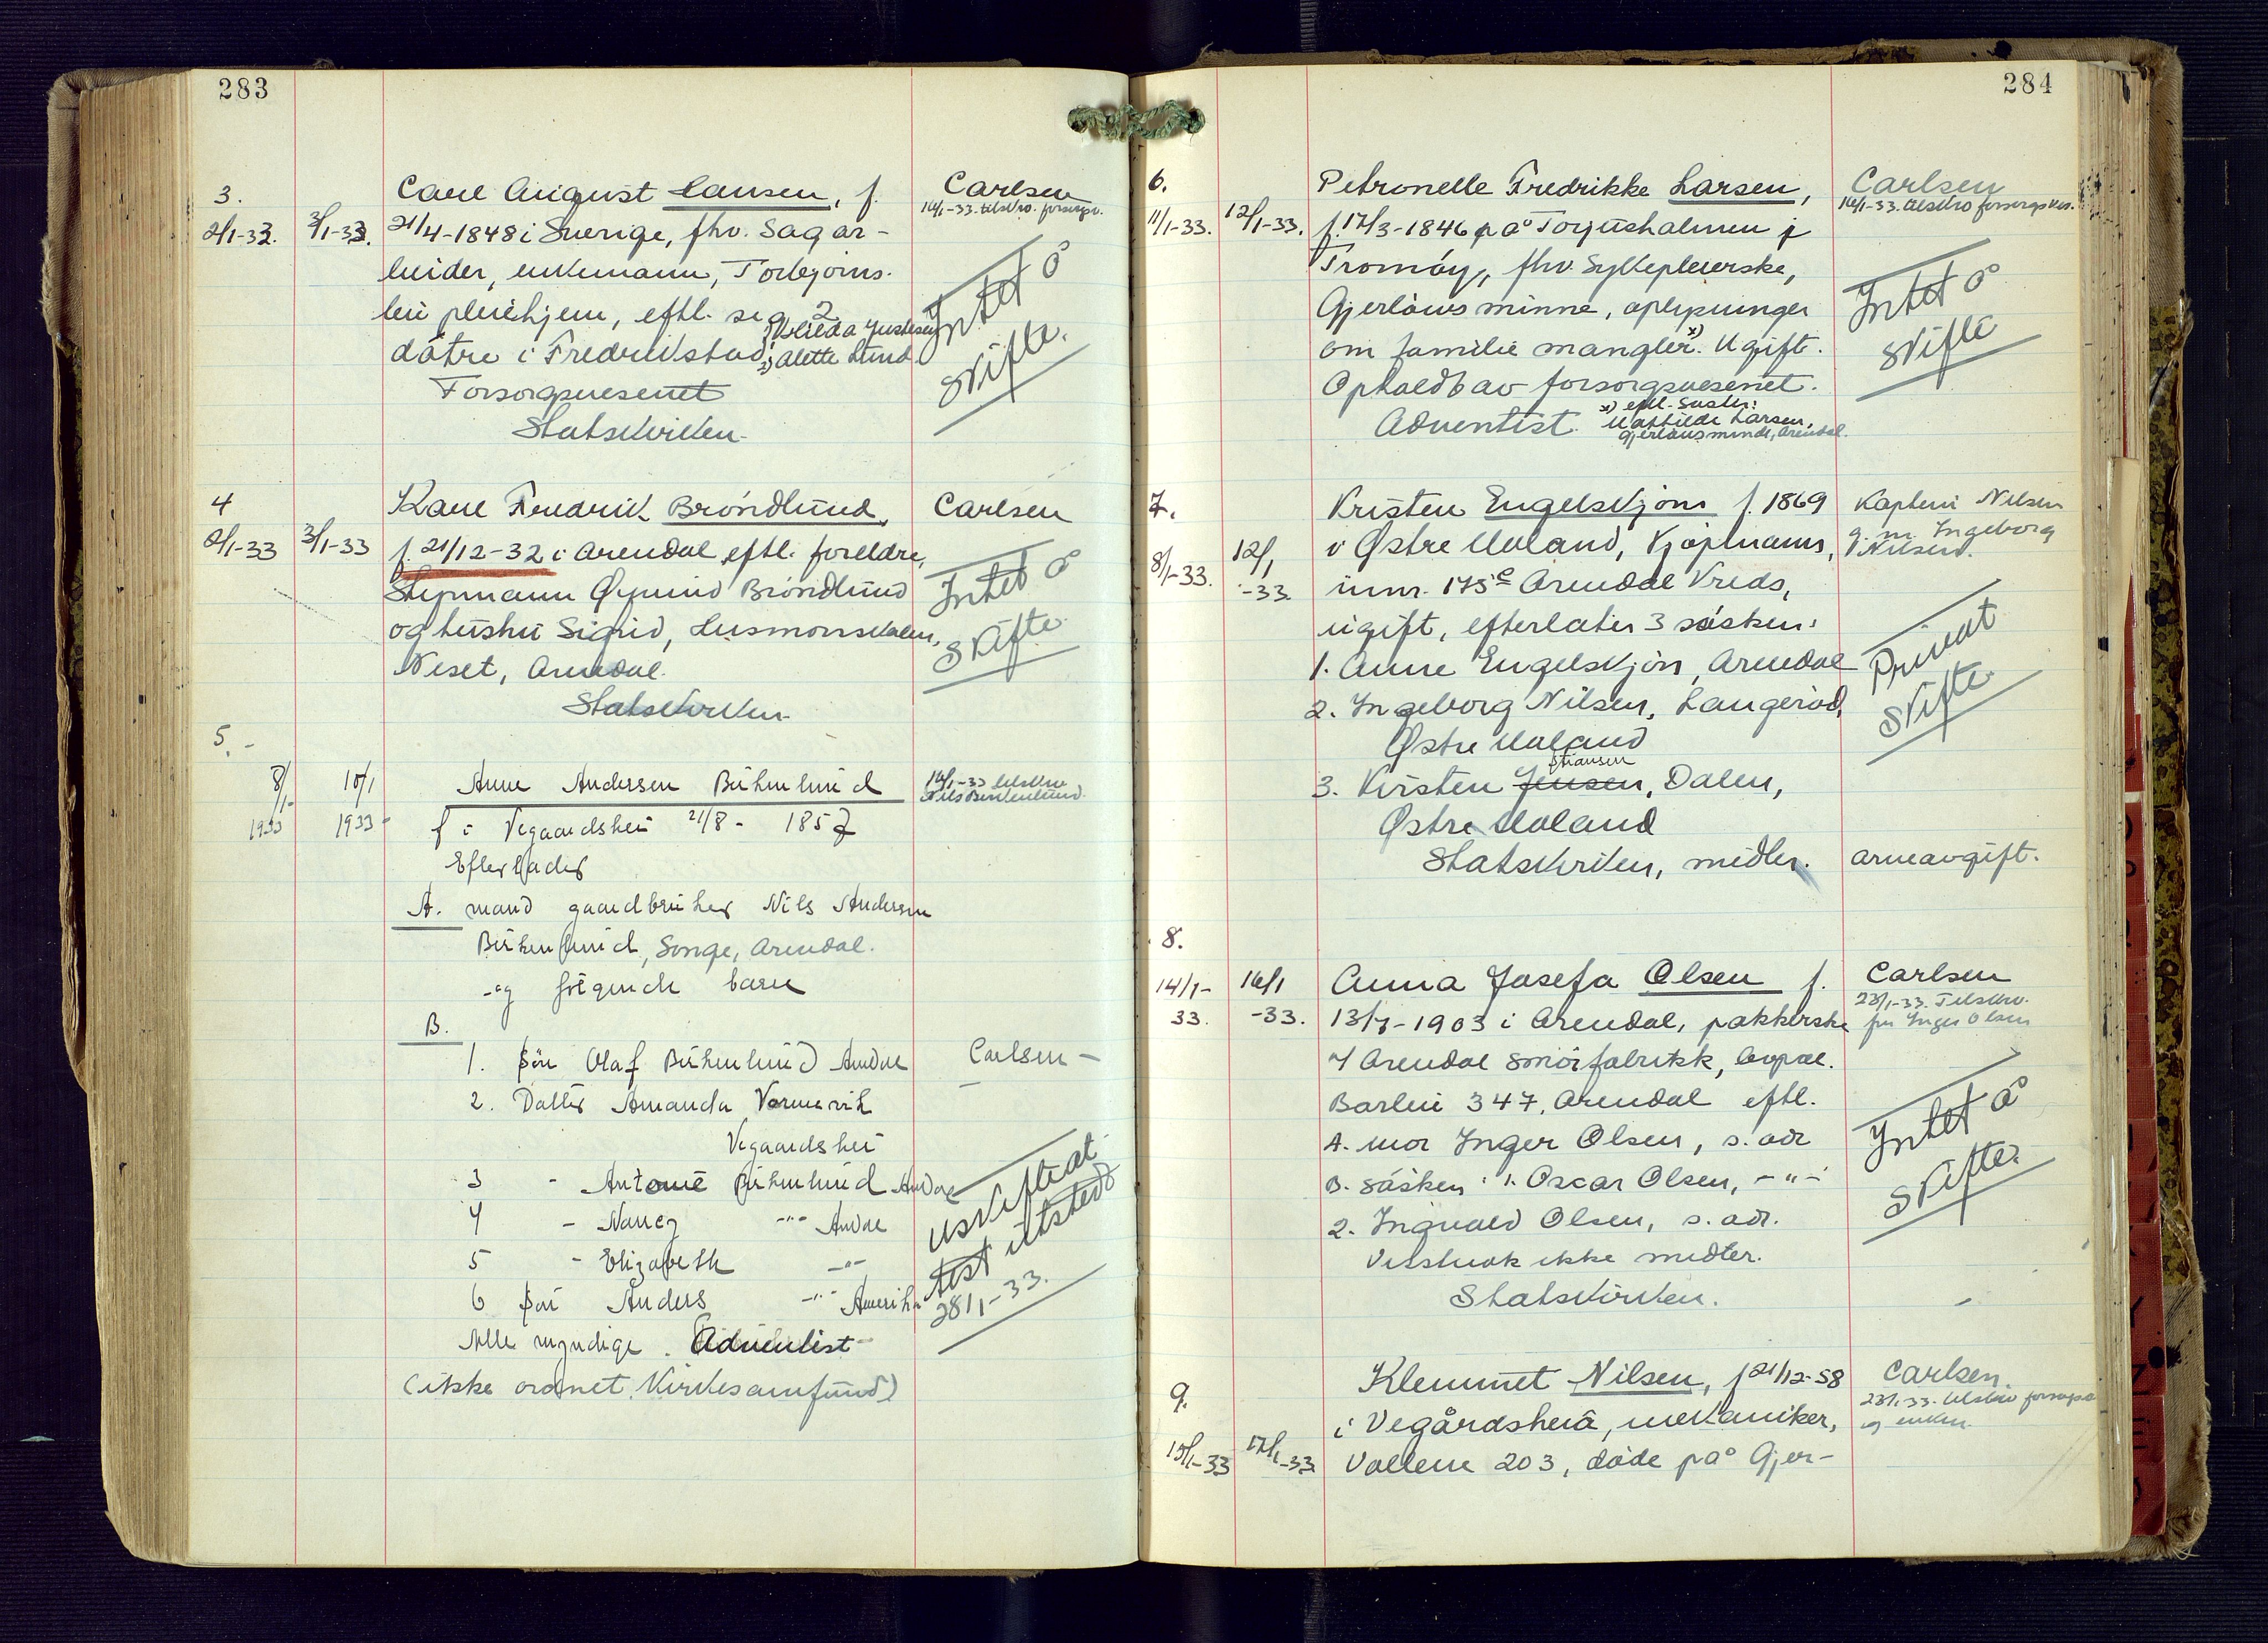 283
3.
2/1-33. 3/1-33.
Carl August Hansen, f.
21/4-1848 i Sverige, fhv. Sagar-
beider, enkemann, Torbjørns-
bu pleiehjem, eftl. sig 2
døtre i Fredrikstad, 1) Valilda Justesen
2) Alette Lund
Forsorgsvesenet
Statskirken.
Carlsen
14/1-33. tilskr. forsorgsv.
Intet å
skifte.
4
2/1-33 3/1-33
Karl Fredrik Brøndlund,
f. 21/12-32 i Arendal eftl. foreldre,
Styrmann Øyvind Brøndlund
og hustru Sigrid, Husmorskolen,
Neset, Arendal.
Statskirken.
Carlsen
Intet å
skifte.
5.
8/1- 1933
10/1 1933
Anne Andersen Birkenlund
f i Vegaardshei 21/8 - 1857
Efterlader
A. mand gaardbruker Nils Andersen
Birkenlund, Songe, Arendal.
og følgende barn
B.
1. Søn Olaf Birkenlund Arendal
2. Datter Amanda Vormervik
Vegaardshei
3 - Antonie Birkenlund Arendal
4 - Nancy -"- Arendal
5 - Elizabeth -"-
6 Søn Anders -"- Amerika
Alle myndige. Adventist
(ikke ordnet Kirkesamfund)
14/1-33 tilskrev
Nils Birkenlund.
Carlsen -
Uskifteat-
test utstedt
28/1-33.
284
6.
11/1-33. 12/1-33.
Petronelle Fredrikke Larsen,
f. 17/3-1846 på Torjusholmen i
Tromøy, fhv. Sykepleierske,
Gjerløws minne, oplysninger
om familie mangler. x) Ugift.
Opholdt av forsorgsvesenet.
Adventist. x) eftl. Søster:
Mathilde Larsen,
Gjerløws minde, Arendal.
Carlsen
14/1-33. tilskrev forsorgsves.
Intet å
skifte
7.
8/1-33. 12/1 -33.
Kristen Engelskjøn f. 1869
i Østre Moland, Kjøpmann,
innr. 175 e Arendal Kreds,
ugift, efterlater 3 søsken:
1. Anne Engelskjøn, Arendal
2. Ingeborg Nilsen, Langerød,
Østre Moland
3. Kirsten Jensen stiansen, Dalen,
Østre Moland
Statskirken, midler.
Kaptein Nilsen
g. m. Ingeborg
Nilsen.
Privat
skifte.
arveavgift.
8.
14/1- 33. 16/1 -33.
Anna Josefa Olsen f.
13/7-1903 i Arendal, pakkerske
v/ Arendal Smørfabrikk,
Barbu 347, Arendal eftl.
A. mor Inger Olsen, s. adr
B. søsken: 1. Oscar Olsen, -"-
2. Ingvald Olsen, s. adr.
Visstnok ikke midler.
Statskirken.
Carlsen
23/1-33. Tilskr.
fru Inger Olsen
Intet å
skifte.
9.
15/1-33 17/1-33
Klemmet Nilsen, f 21/12-58
i Vegårdshei, mekaniker,
Vollene 203, døde på Gjer-
Carlsen.
23/1.33. tilskrev forsorgsv.
og enken.